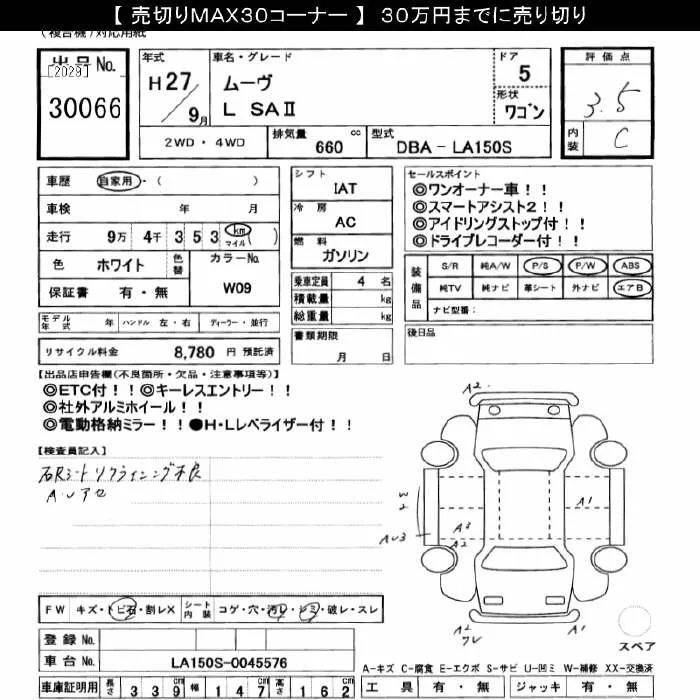 【 売切りMAX30コーナー 】 30万円までに売り切り
(複合機)対応用紙
出品No.
[2029]
30066
年式
H27/9月
車名・グレード
ムーヴ
L SAⅡ
ドア
5
形状
ワゴン
評価点
3.5
内装
C
2WD・4WD
排気量 660 cc
型式 DBA－LA150S
車歴 自家用・( )
車検 年 月
走行 9万 4千 3 5 3 km マイル ( )
色 ホワイト 色替 カラーNo.
保証書 有・無 W09
シフト
IAT
冷房
AC
燃料
ガソリン
乗車定員 4 名
積載量 kg
総重量 kg
セールスポイント
◎ワンオーナー車！！
◎スマートアシスト2！！
◎アイドリングストップ付！！
◎ドライブレコーダー付！！
装備品
S/R 純A/W P/S P/W ABS
純TV 純ナビ 革シート 外ナビ エアB
ナビ型番：
モデル年式 年 ハンドル 左・右 ディーラー・並行
書類期限
月 日
後日品
リサイクル料金 8,780 円 預託済
【出品店申告欄(不良箇所・欠品・注意事項等)】
◎ETC付！！◎キーレスエントリー！！
◎社外アルミホイール！！
◎電動格納ミラー！！●H・Lレベライザー付！！
【検査員記入】
右Rシートリクライニング不良
A2
W2
A1
A3
A2
AU3
A2
A1
FW キズ・トビ石・割レX シート内装 コゲ・穴・汚レ・シミ・破レ・スレ
登録No.
車台No. LA150S-0045576
スペア
A-キズ C-腐食 E-エクボ S-サビ U-凹ミ W-補修 XX-交換済
車庫証明用 長さ 3 3 9 cm 幅 1 4 7 cm 高さ 1 6 2 cm
工具 有・無 ジャッキ 有・無